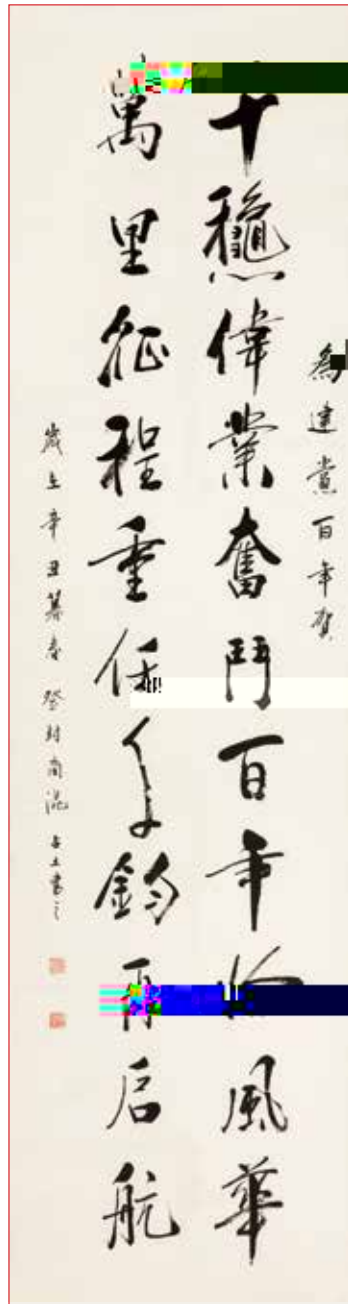 為建黨百年賀
千穐偉業奮鬥百年風華
萬里征程重任千鈞再启航
歲在辛丑暮春登封書之